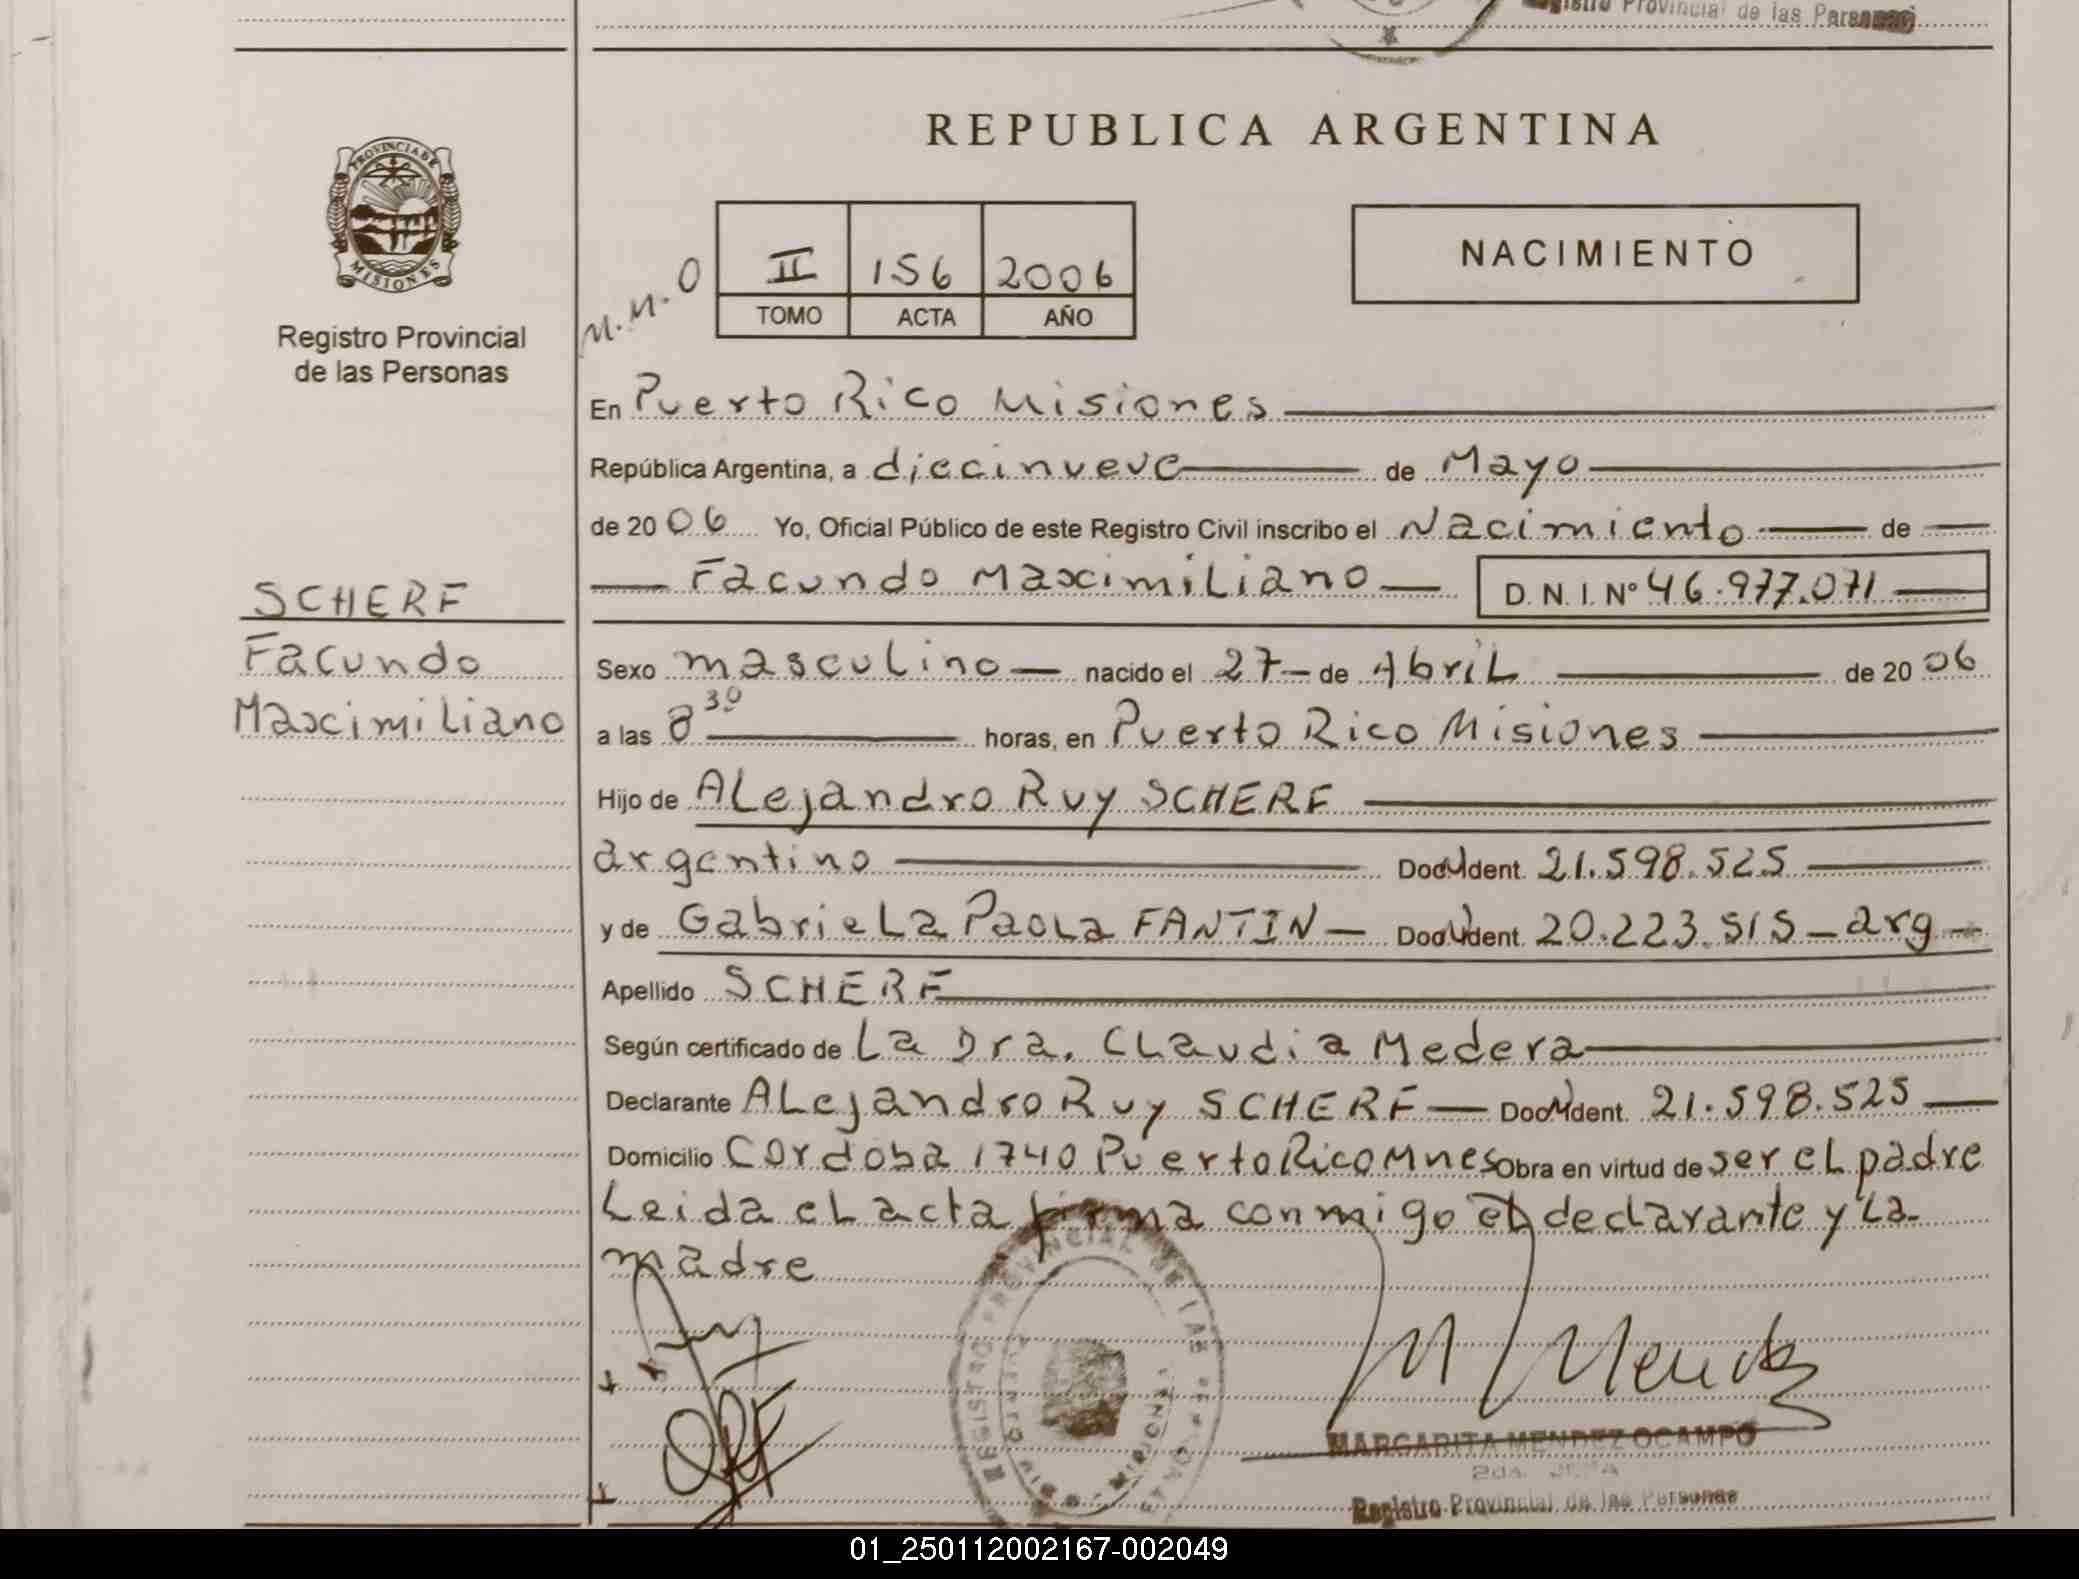 Registro Provincial de las Personas
PROVINCIA DE
MISIONES
Registro Provincial
de las Personas
REPUBLICA ARGENTINA
M.M.O
II 156 2006
TOMO ACTA AÑO
NACIMIENTO
SCHERF
Facundo
Maximiliano
En Puerto Rico Misiones
República Argentina, a diecinueve de Mayo
de 20 06 Yo, Oficial Público de este Registro Civil inscribo el Nacimiento de
Facundo Maximiliano D. N. I. Nº 46.977.071
Sexo masculino nacido el 27 de Abril de 20 06
a las 8 30 horas, en Puerto Rico Misiones
Hijo de Alejandro Ruy SCHERF
argentino Doc. Ident. 21.598.525
y de Gabriela Paola FANTIN Doc. Ident. 20.223.515 - arg
Apellido SCHERF
Según certificado de La Dra. Claudia Medera
Declarante Alejandro Ruy SCHERF Doc. Ident. 21.598.525
Domicilio Cordoba 1740 Puerto Rico Mnes Obra en virtud de ser el padre
Leida el acta firma conmigo el declarante y la
madre
REGISTRO PROVINCIAL DE LAS
MISIONES
M Mendez
MARGARITA MENDEZ OCAMPO
2da. JEFA
Registro Provincial de las Personas
01_250112002167-002049